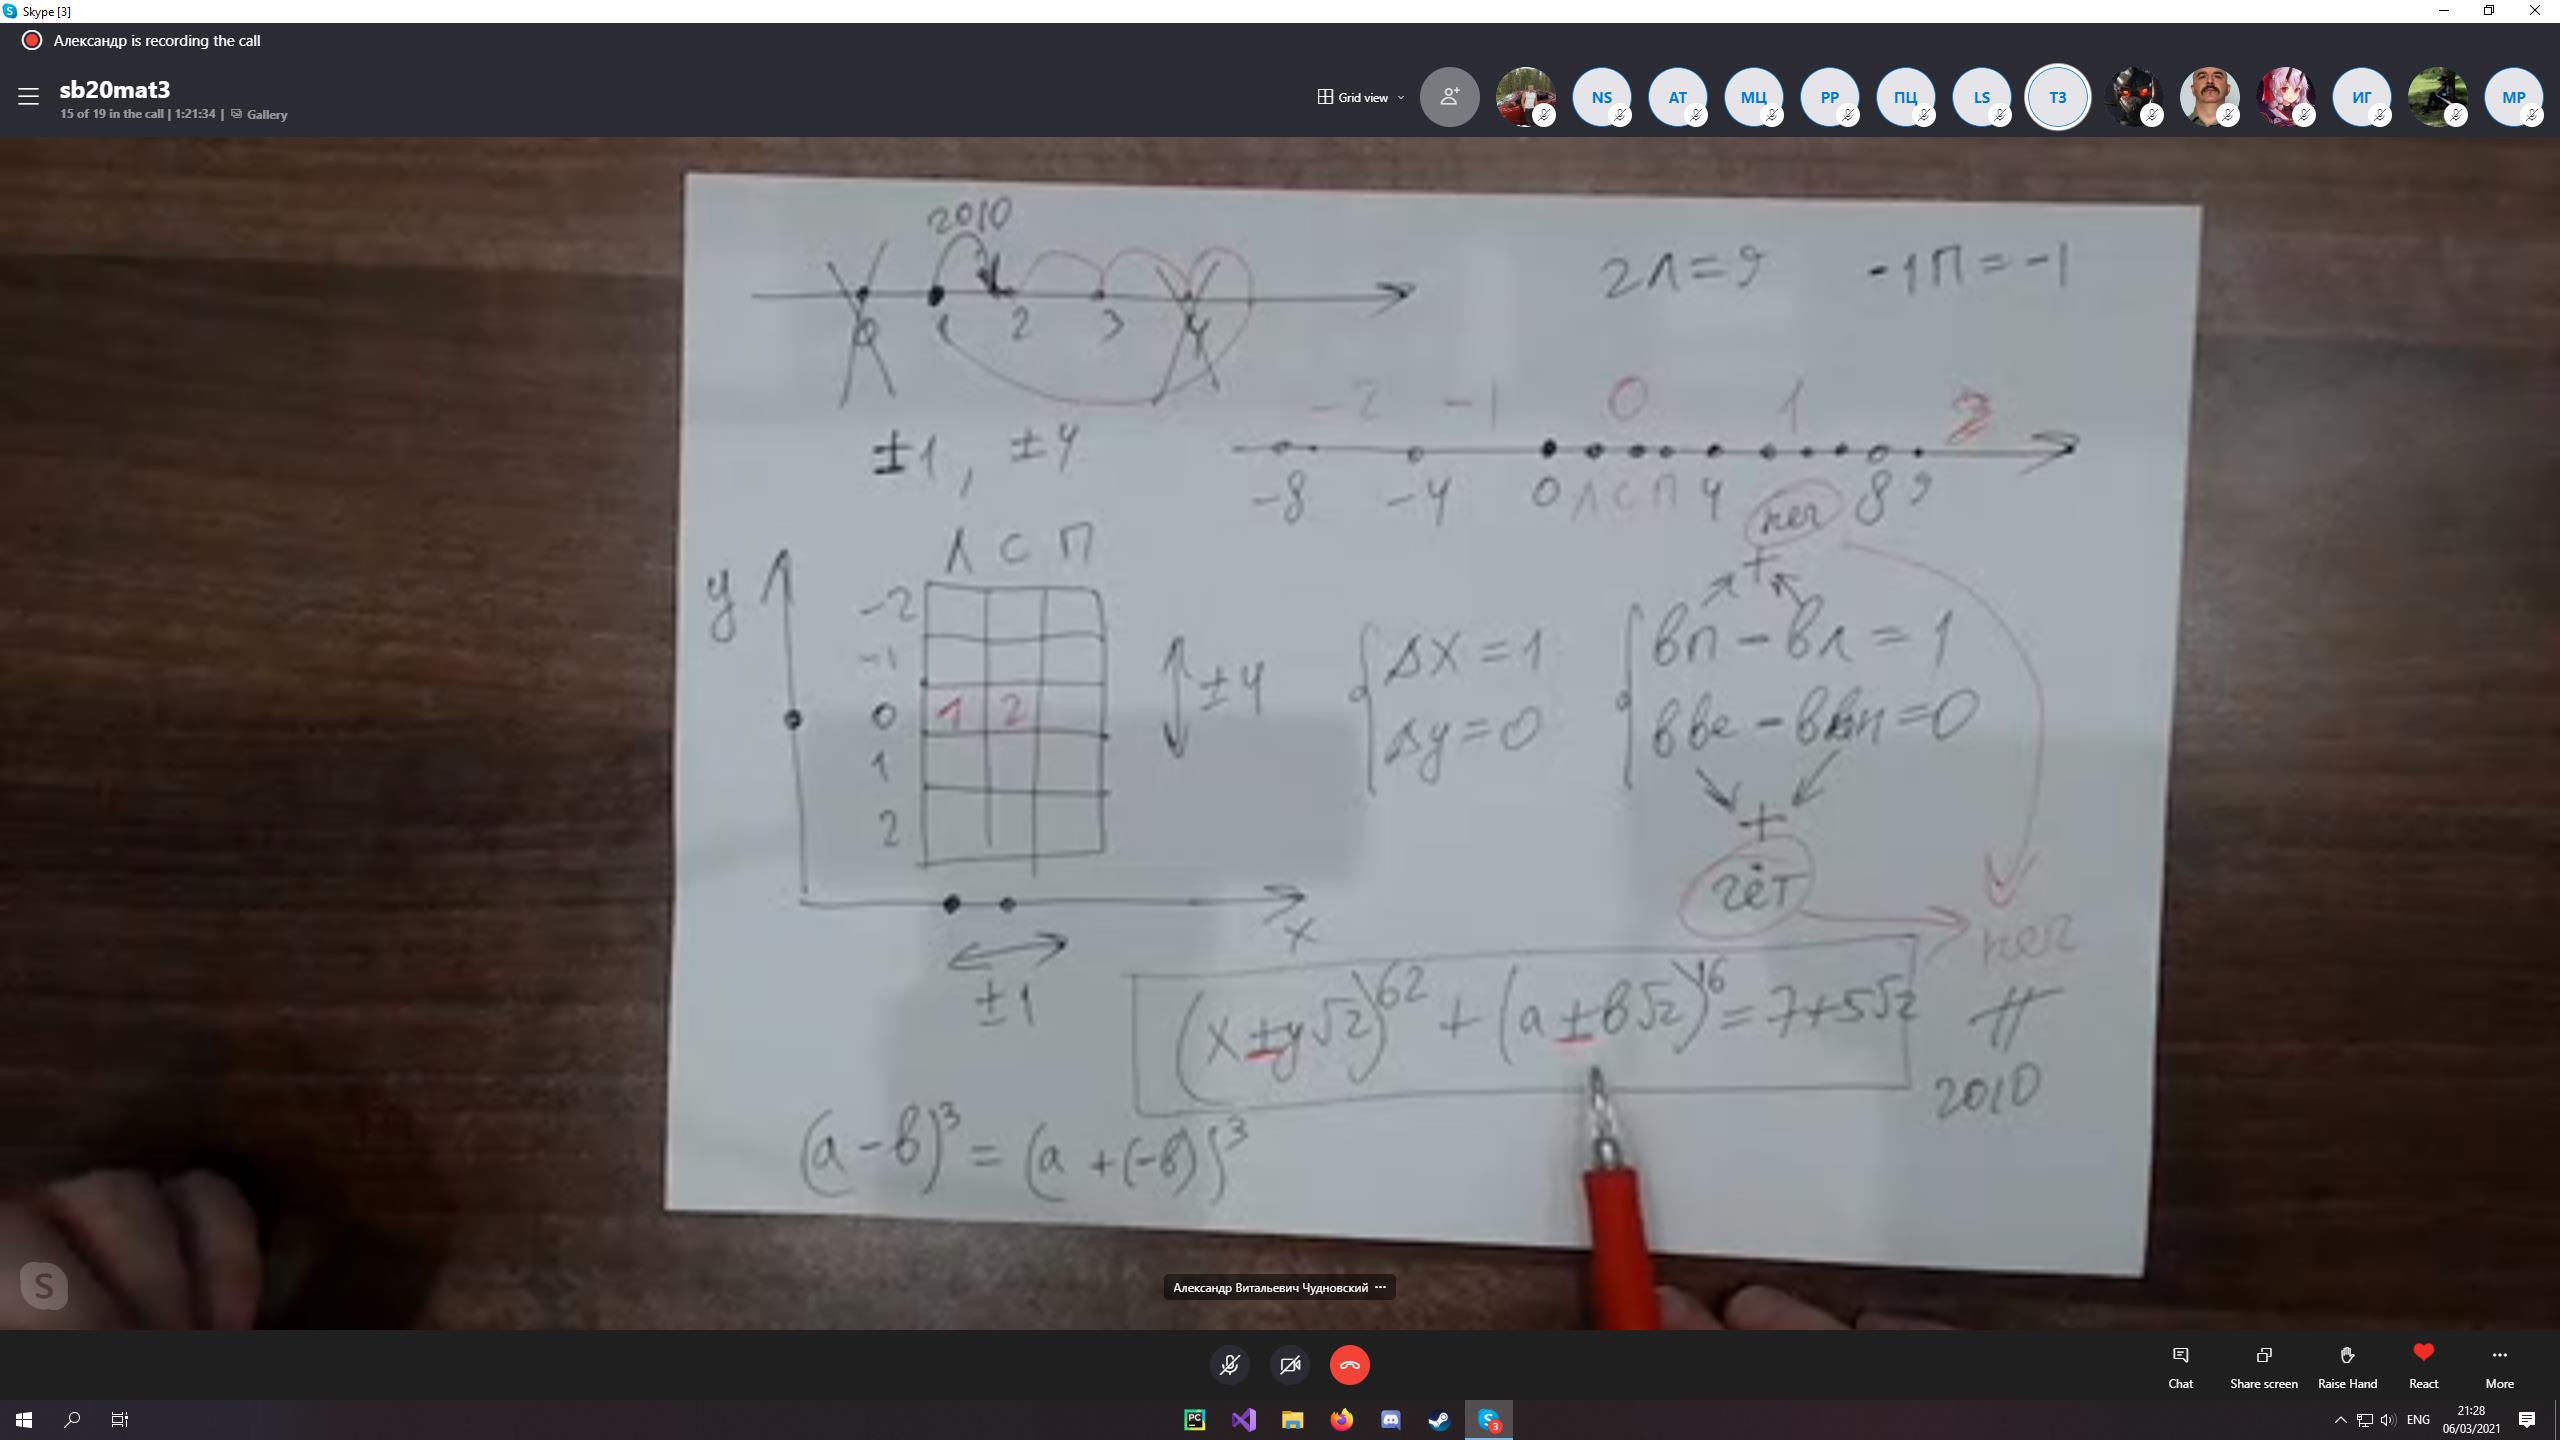 Skype [3]
Александр is recording the call
sb20mat3
15 of 19 in the call | 1:21:34 | Gallery
Grid view
NS
AT
МЦ
PP
ПЦ
LS
ТЗ
ИГ
MP
2010
0 1 2 3 4
2Л=9 -1П=-1
±1, ±4
-2 -1 0 1 2
-8 -4 0 Л С П 4 8 9
неч
+
Л С П
y
-2
-1
0 1 2
1
2
±4
Δx=1
Δy=0
вп-вл=1
вве-ввн=0
+
чёт
неч
x
±1
(x±y√2)^62+(a±b√2)^16=7+5√2
2010
(a-b)^3=(a+(-b))^3
Александр Витальевич Чудновский
S
Chat
Share screen
Raise Hand
React
More
PC
3
ENG
21:28
06/03/2021